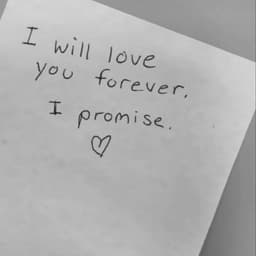 I will love
you forever.
I promise.
♡